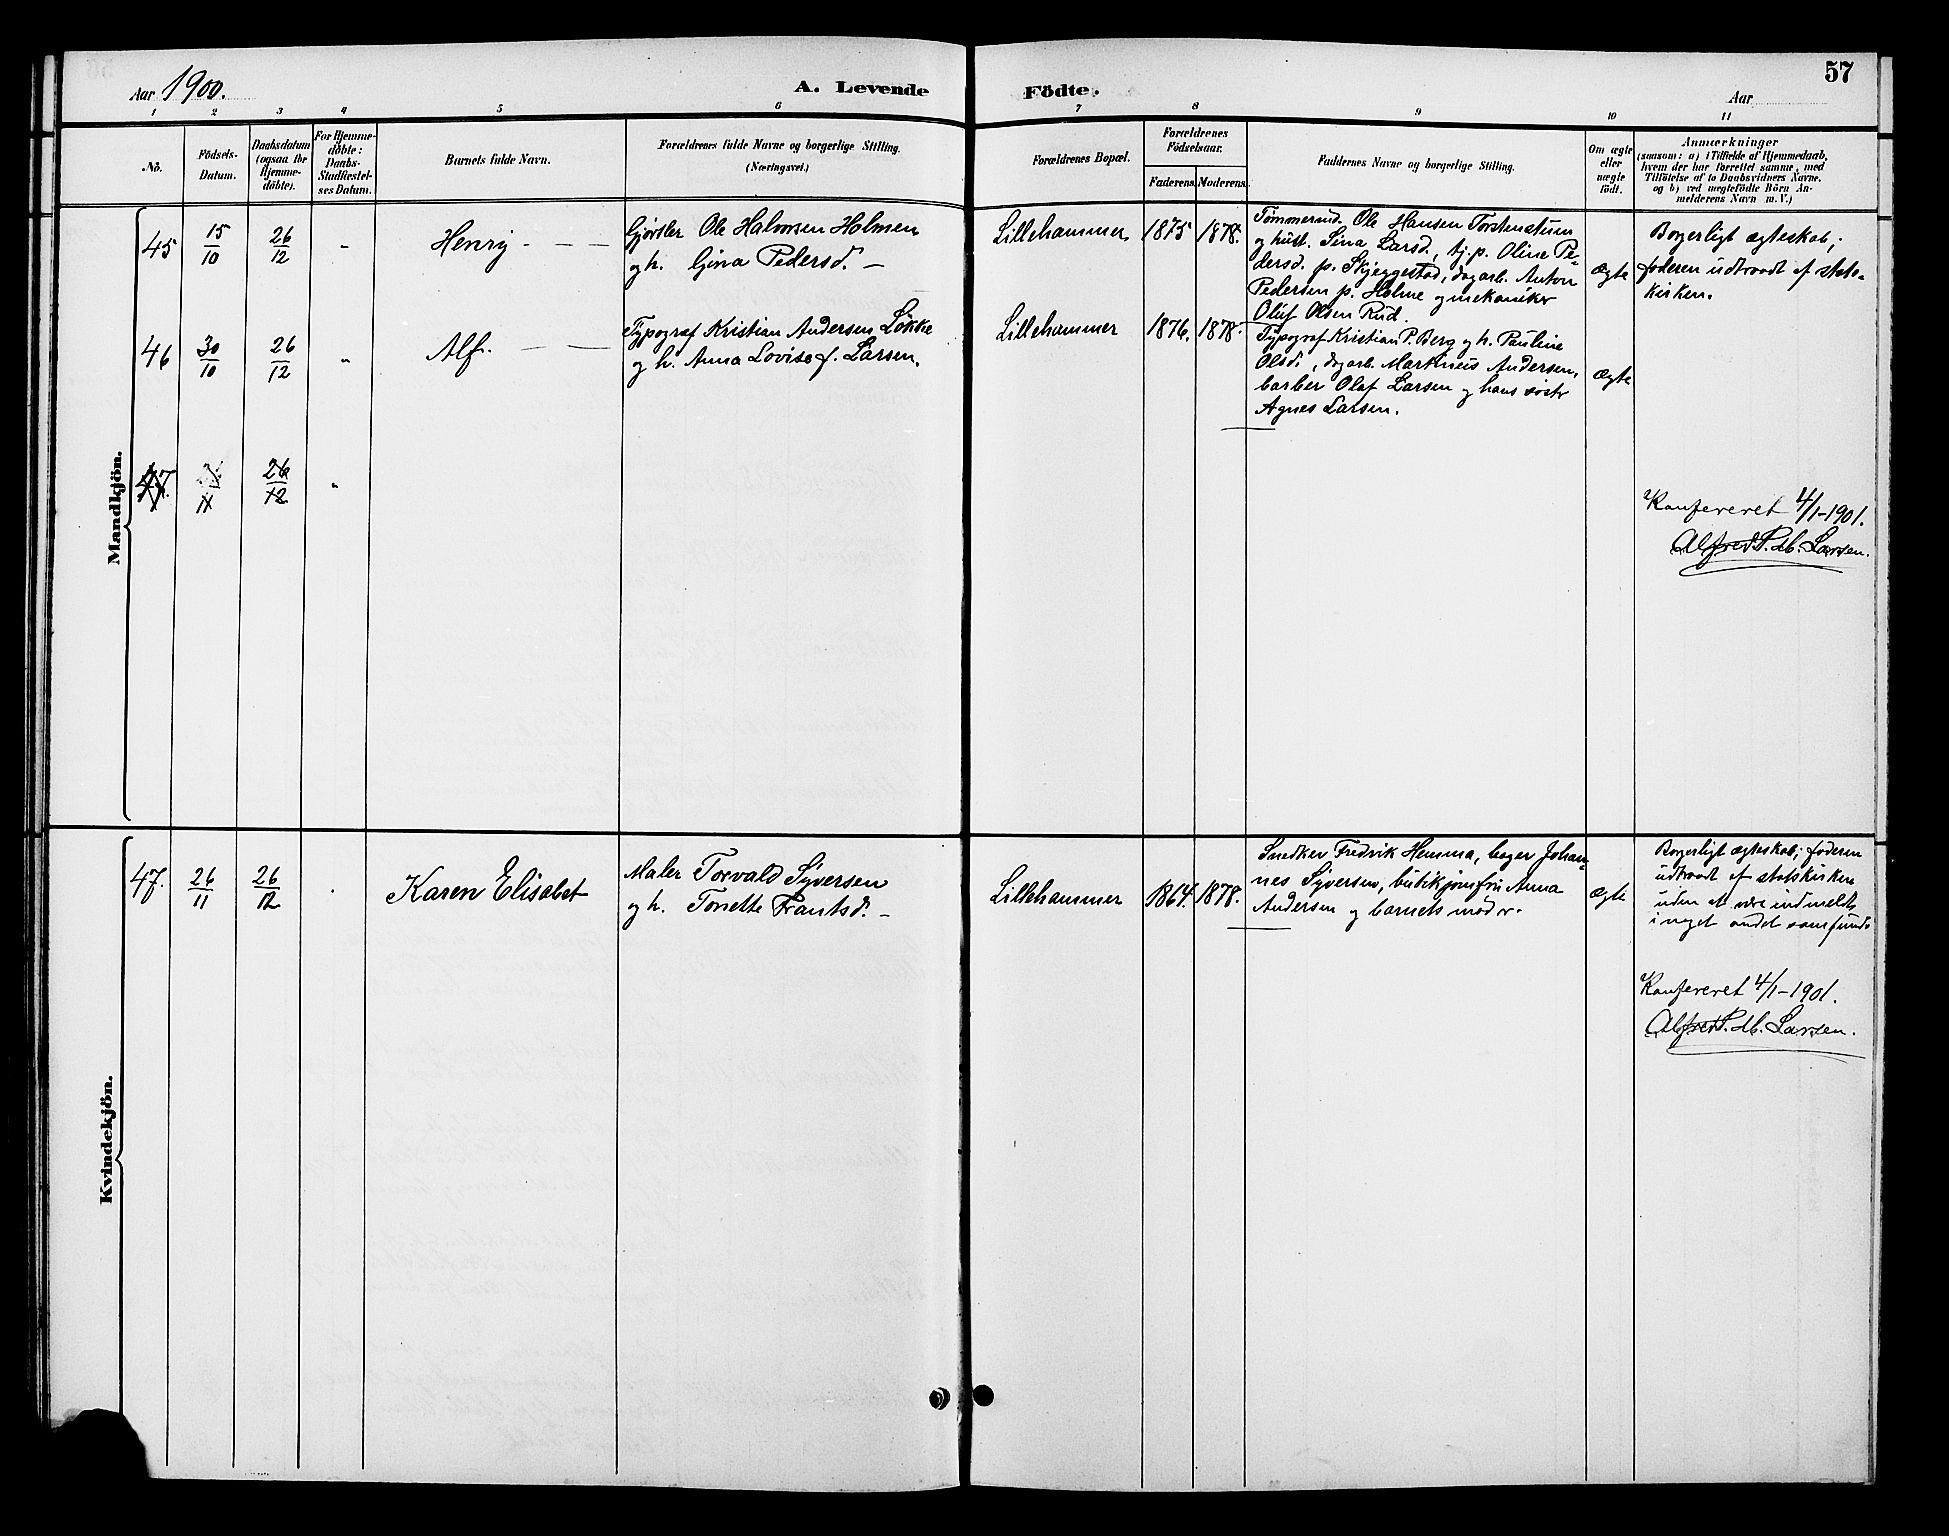 Aar 1900.
A. Levende Födte.
57
Aar
1 2 3 4 5 6 7 8 9 10 11
No.
Födsels-
Datum.
Daabsdatum
(ogsaa for
Hjemme-
döbte).
For Hjemme-
döbte:
Daabs-
Stadfæstel-
ses Datum.
Barnets fulde Navn.
Forældrenes fulde Navne og borgerlige Stilling.
(Næringsvei.)
Forældrenes Bopæl.
Forældrenes
Födselsaar.
Faderens. Moderens.
Faddernes Navne og borgerlige Stilling.
Om ægte
eller
uægte
födt.
Anmærkninger
(saasom: a) i Tilfælde af Hjemmedaab,
hvem der har forrettet samme, med
Tilföielse af to Daabsvidners Navne.
og b) ved uægtefödte Börn An-
melderens Navn m. V.)
Mandkjön.
45
15/10
26/12
"
Henry
Gjørtler Ole Halvorsen Holmen
og h. Gina Pedersd.
Lillehammer
1875
1878.
Tømmermd. Ole Hansen Torstenstuen
og hust. Sina Larsd., tj.p. Oline Pe-
dersd. p. Skjeggestad, dagarb. Anton
Pedersen p. Holme og mekaniker
Oluf Olsen Rud.
ægte
Borgerligt ægteskab;
faderen udtraadt af stats-
kirken.
46
30/10
26/12
"
Alf.
Typograf Kristian Andersen Løkke
og h. Anna Lovise f. Larsen.
Lillehammer
1876.
1878.
Typograf Kristian P. Berg og h. Pauline
Olsd., dagarb. Martinius Andersen,
barber Olaf Larsen og hans søster
Agnes Larsen.
ægte
47.
26/12
"
Konfereret 4/1-1901.
Alfred P. M. Larsen.
Kvindekjön.
47.
26/11
26/12
Karen Elisabet
Maler Torvald Syversen
og h. Tonette Frantsd.
Lillehammer
1864.
1878.
Snedker Fredrik Hemma, bager Johan-
nes Syversen, butikjomfru Anna
Andersen og barnets moder.
ægte
Borgerligt ægteskab; faderen
udtraadt af statskirken
uden at være indmeldt
i noget andet samfund.
Konfereret 4/1-1901.
Alfred P. M. Larsen.